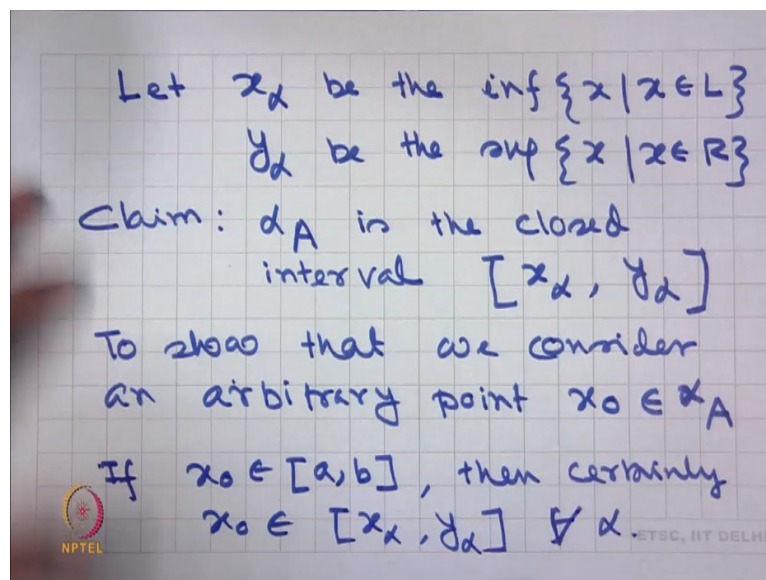 Let x_α be the inf {x | x ∈ L}
y_α be the sup {x | x ∈ R}
Claim: α_A is the closed
interval [x_α, y_α]
To show that we consider
an arbitrary point x_0 ∈ α_A
If x_0 ∈ [a, b], then certainly
x_0 ∈ [x_α, y_α] ∀ α.
ETSC, IIT DELHI
NPTEL